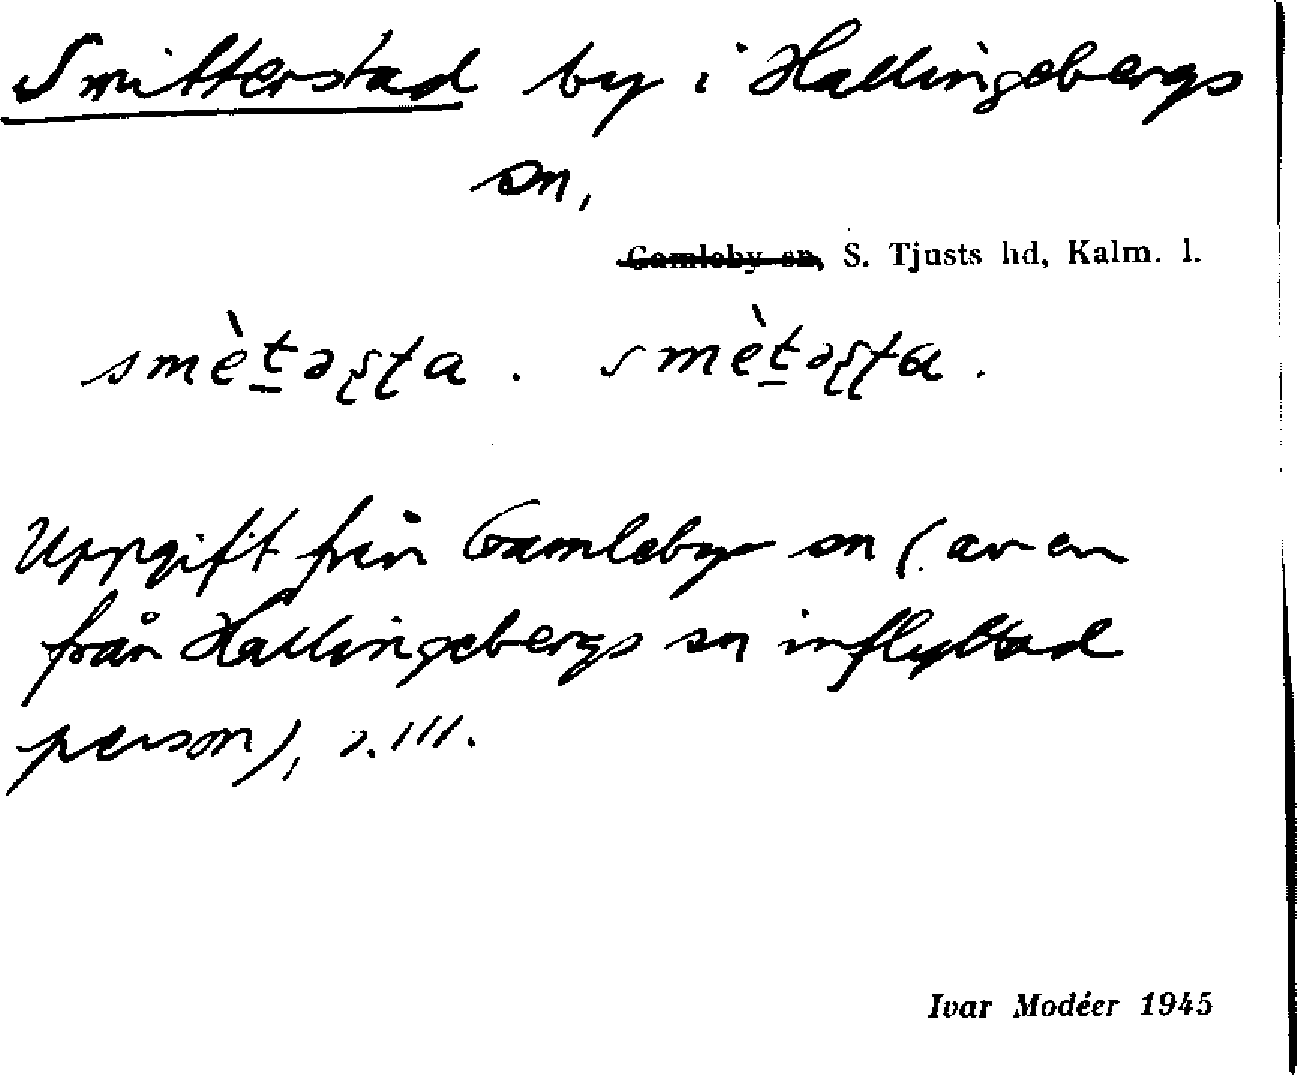 Smitterstad by i Hallingebergs
sn,
Gamleby sn, S. Tjusts hd, Kalm. l.
smèt̲əʂʈa. smèt̲əʂʈɑ.
Uppgift från Gamleby sn (av en
från Hallingebergs sn inflyttad
person),
Ivar Modéer 1945